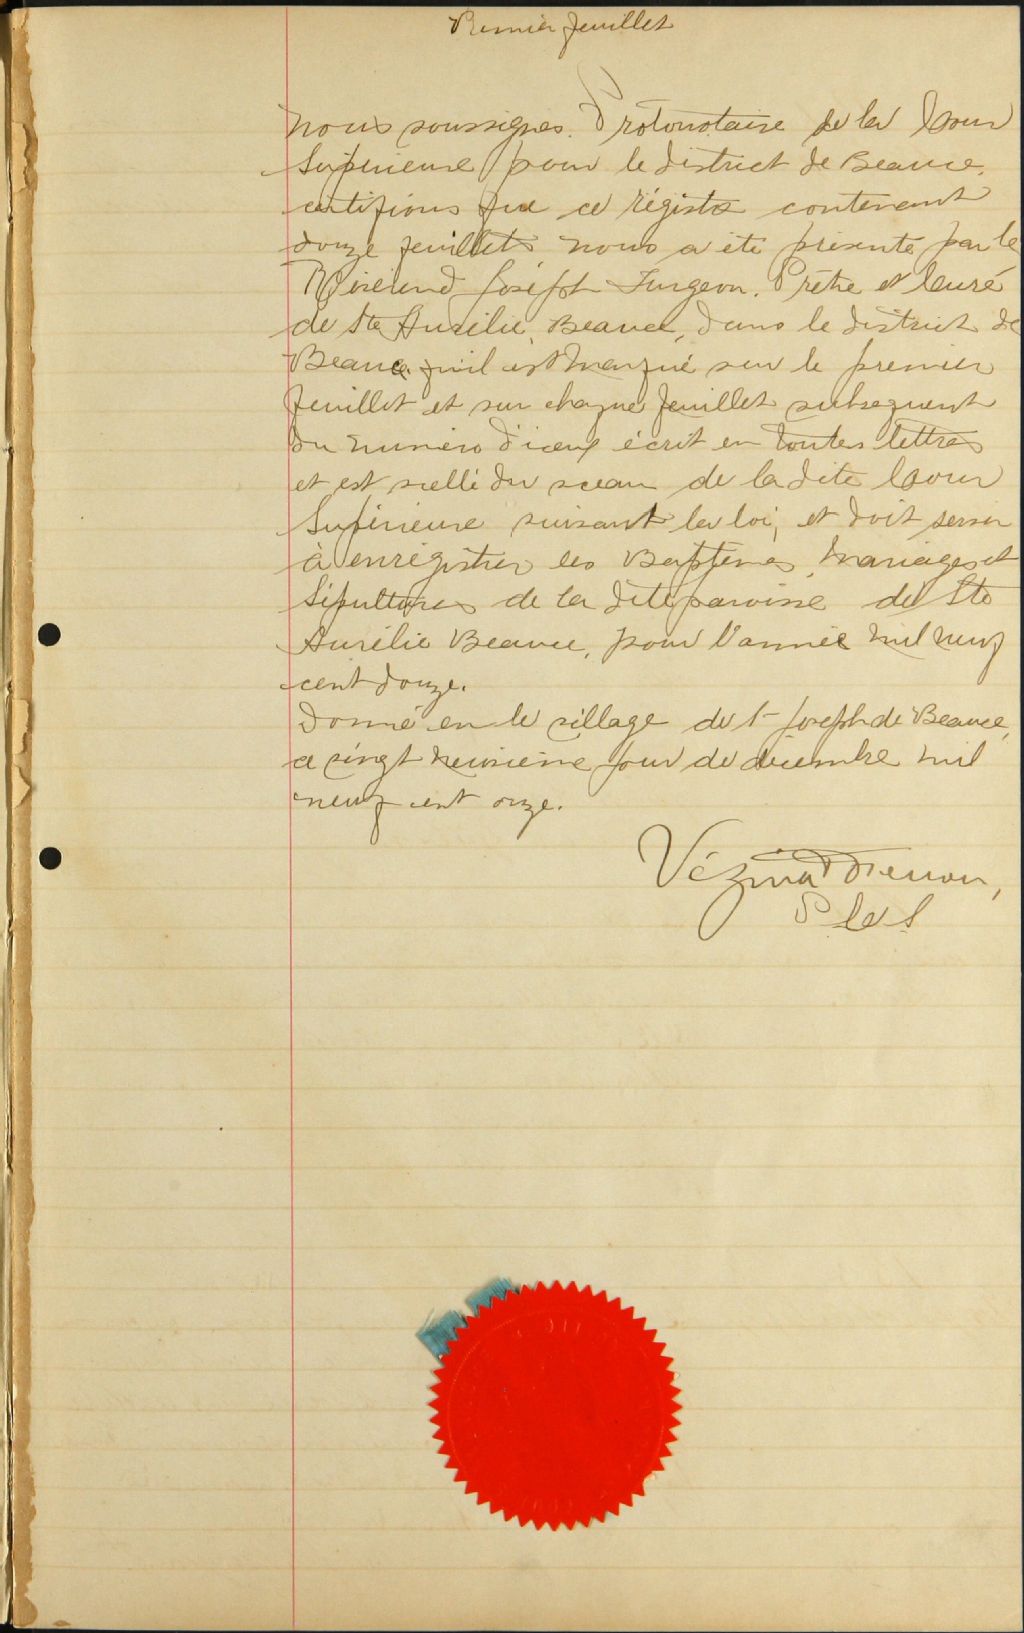 Premier feuillet
Nous soussignés. Protonotaire de la Cour
Supérieure pour le district de Beauce.
certifions que ce régistre contenant
douze feuillets nous a été présenté par le
Révérend Joseph Turgeon. Prêtre et Curé
de Ste Aurélie, Beauce, dans le district de
Beauce qu'il est marqué sur le premier
feuillet et sur chaque feuillet subsequent
du numéro d'iceux écrit en toutes lettres
et est scellé du sceau de la dite Cour
Supérieure suivant la loi, et doit servir
à enrégistrer les Baptêmes, Mariages et
Sépultures de la dite paroisse de Ste
Aurélie Beauce, pour l'année mil neuf
cent douze.
Donné en le village de St Joseph de Beauce,
ce vingt neuvième jour de décembre mil
neuf cent onze.
Vézina
P C S